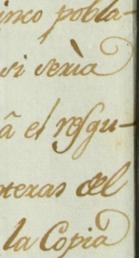 inco pobla-
si sería
â el resgu-
oteras del
la Copia